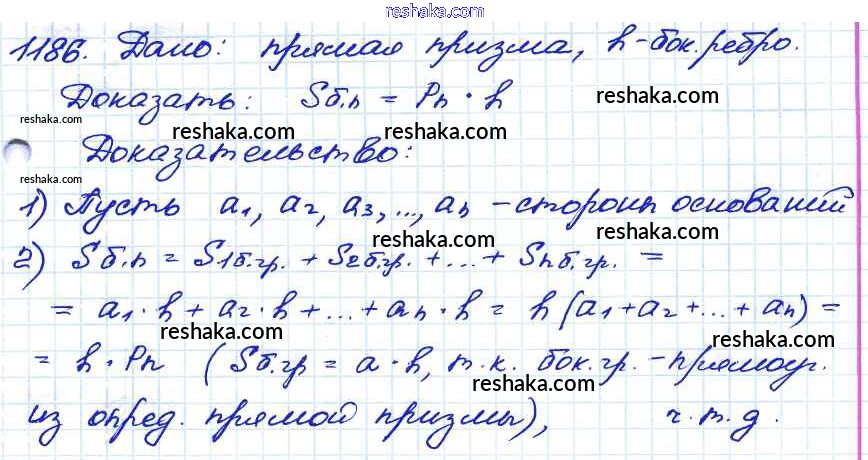 reshaka.com
1186. Дано: прямая призма, h-бок.ребро.
Доказать: Sб.п = Pп · h reshaka.com
reshaka.com reshaka.com reshaka.com
Доказательство:
reshaka.com
1) Пусть a₁, a₂, a₃, ..., aₙ - стороны оснований
reshaka.com reshaka.com
2) Sб.п = S₁б.гр. + S₂б.гр. + ... + Sₙб.гр. =
reshaka.com
= a₁ · h + a₂ · h + ... + aₙ · h = h (a₁ + a₂ + ... + aₙ) =
reshaka.com reshaka.com
= h · Pп (Sб.гр = a · h, т.к. бок.гр. - прямоуг.
reshaka.com reshaka.com
из опред. прямой призмы), ч.т.д.